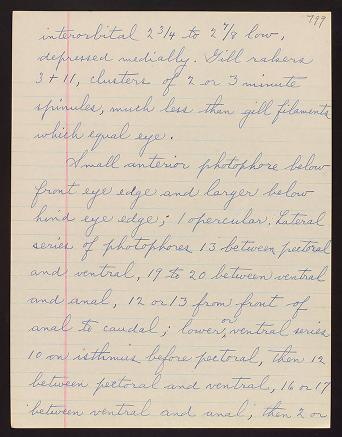 799
interorbital 2 3/4 to 2 7/8 low,
depressed medially. Gill rakers
3 + 11, clusters of 2 or 3 minute
spinules, much less than gill filaments
which equal eye.
Small anterior photophore below
front eye edge and larger below
hind eye edge; 1 opercular. Lateral
series of photophores 13 between pectoral
and ventral, 19 to 20 between ventral
and anal, 12 or 13 from front of
anal to caudal; lower, or ventral series
10 on isthmus before pectoral, then 12
between pectoral and ventral, 16 or 17
between ventral and anal, then 2 or